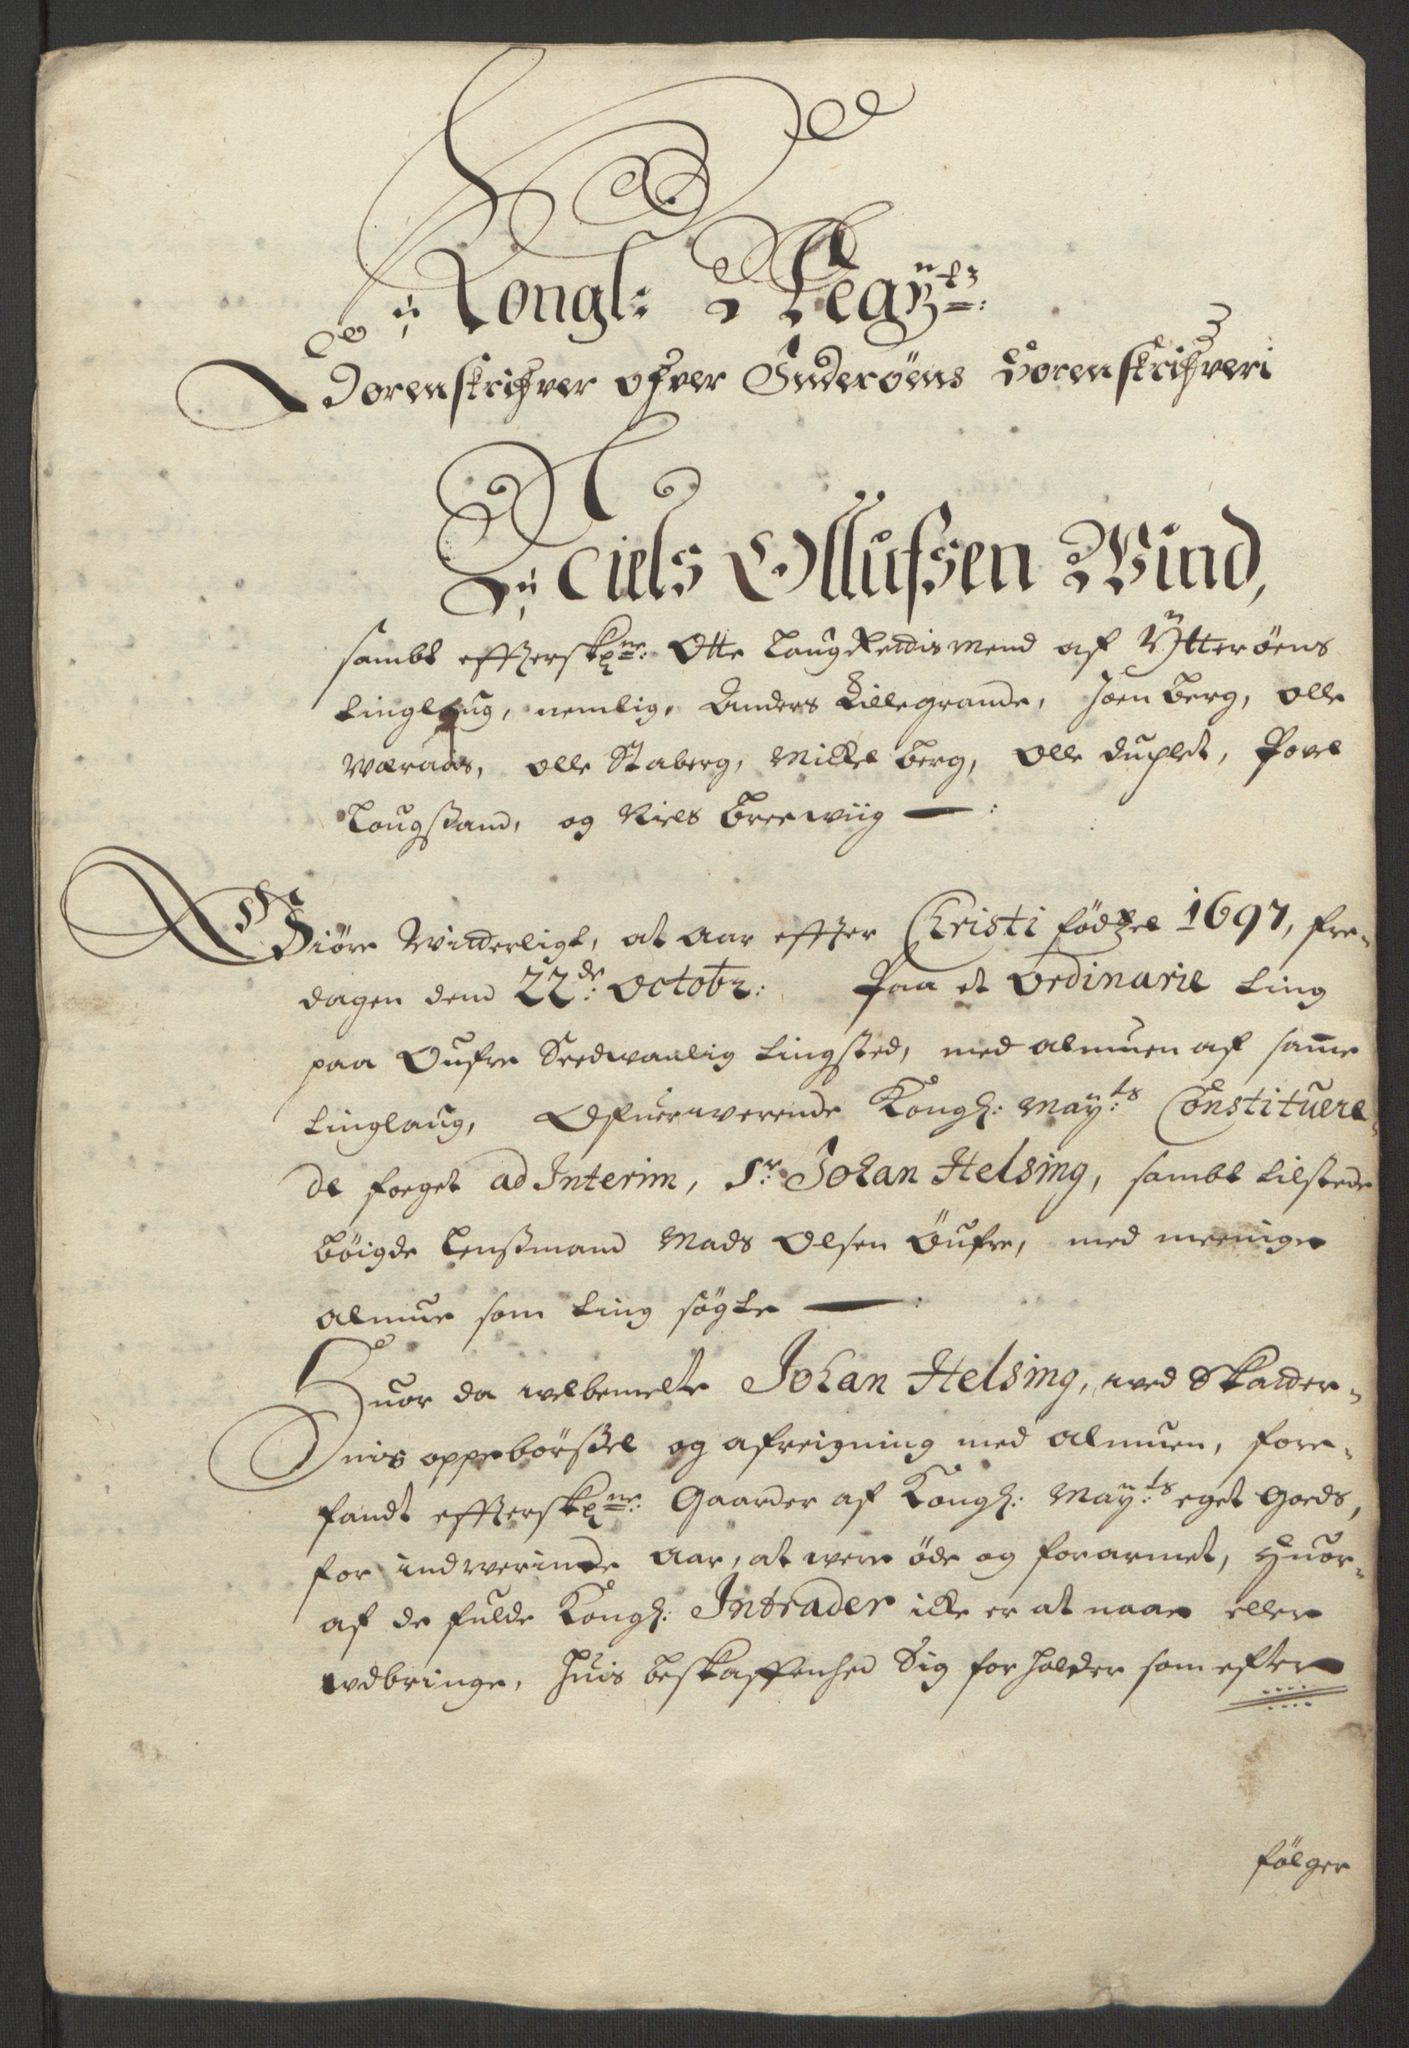 Kongl: Mayttz:
Sorenskrifver ofver Inderøens Sorenskrifveri
Niels Ollufsen Wind,
sambt effterskne: Otte Laug Rettis Mend af Ytterøens
Tinglaug, nemlig, Anders Lillegrande, Joen Berg, Olle
Wæraas, Olle Staberg, Mikkel Berg, Olle Duplet, Povel
Laugsand, og Niels Breewiig —:
Giøre Witterligt, at aar effter Christi fødtzel 1697, fre-
dagen dend 22de: Octobr: Paa et Ordinarie Ting
paa Øufre Sædwanlig Tingsted, med almuen af samme
Tinglaug, Ofuerwerende Kongl: Mayts: Constituere-
de foeget ad Interim, Sr: Johan Helsing, sambt tilstede
Bøigde Lensmand Mads Olsen Øufre, med meenige
almue som Ting søgte —:
Huor da welbemelte Johan Helsing, wed Skatter-
nis oppebørssel og afreigning med almuen, fore-
fandt effterskne: Gaarder af Kongl: Mayts: eget Goeds,
for indwerinde Aar, at were øde og forarmet, Huor-
af de fulde Kongl: Intrader icke er at naae eller
udbringe, Huis beskaffenhed Sig forholder som efter
følger